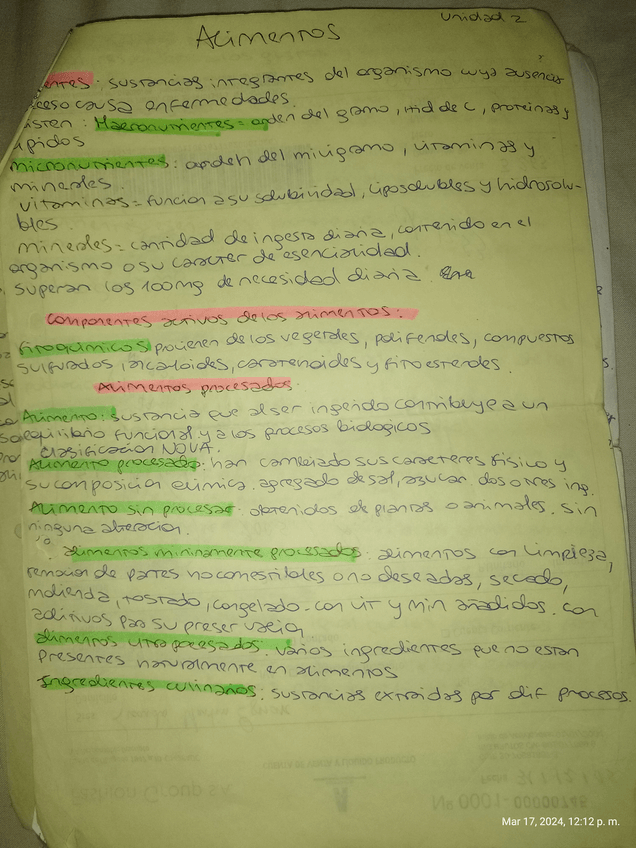 Unidad 2
Alimentos
entes: sustancias integrantes del organismo cuya ausencia
ceso causa enfermedades.
isten: Macronutrientes= orden del gramo, Hid de C, proteinas y
lipidos
micronutrientes: orden del miligramo, vitaminas y
minerales.
vitaminas= funcion a su solubilidad, liposolubles y hidrosolu-
bles.
minerales= cantidad de ingesta diaria, contenido en el
organismo o su caracter de esencialidad.
superan los 100mg de necesidad diaria.
Componentes activos de los alimentos:
fitoquimicos provienen de los vegetales, polifenoles, compuestos
sulfurados, alcaloides, carotenoides y fitoesteroles.
Alimentos procesados
Alimento: sustancia que al ser ingerido contribuye a un
equilibrio funcional y a los procesos biologicos
Clasificacion NOVA.
Alimento procesado: han cambiado sus caracteres fisico y
su composicion quimica. agregado de sal, azucar. dos o tres ing.
Alimento sin procesar: obtenidos de plantas o animales. sin
ninguna alteracion.
alimentos minimamente procesados: alimentos con limpieza,
remocion de partes no comestibles o no deseadas, secado,
molienda, tostado, congelado. con vit y min añadidos. con
aditivos para su preservacion
alimentos ultraprocesados. varios ingredientes que no estan
presentes naturalmente en alimentos
Ingredientes culinarios: sustancias extraidas por dif procesos.
Mar 17, 2024, 12:12 p. m.